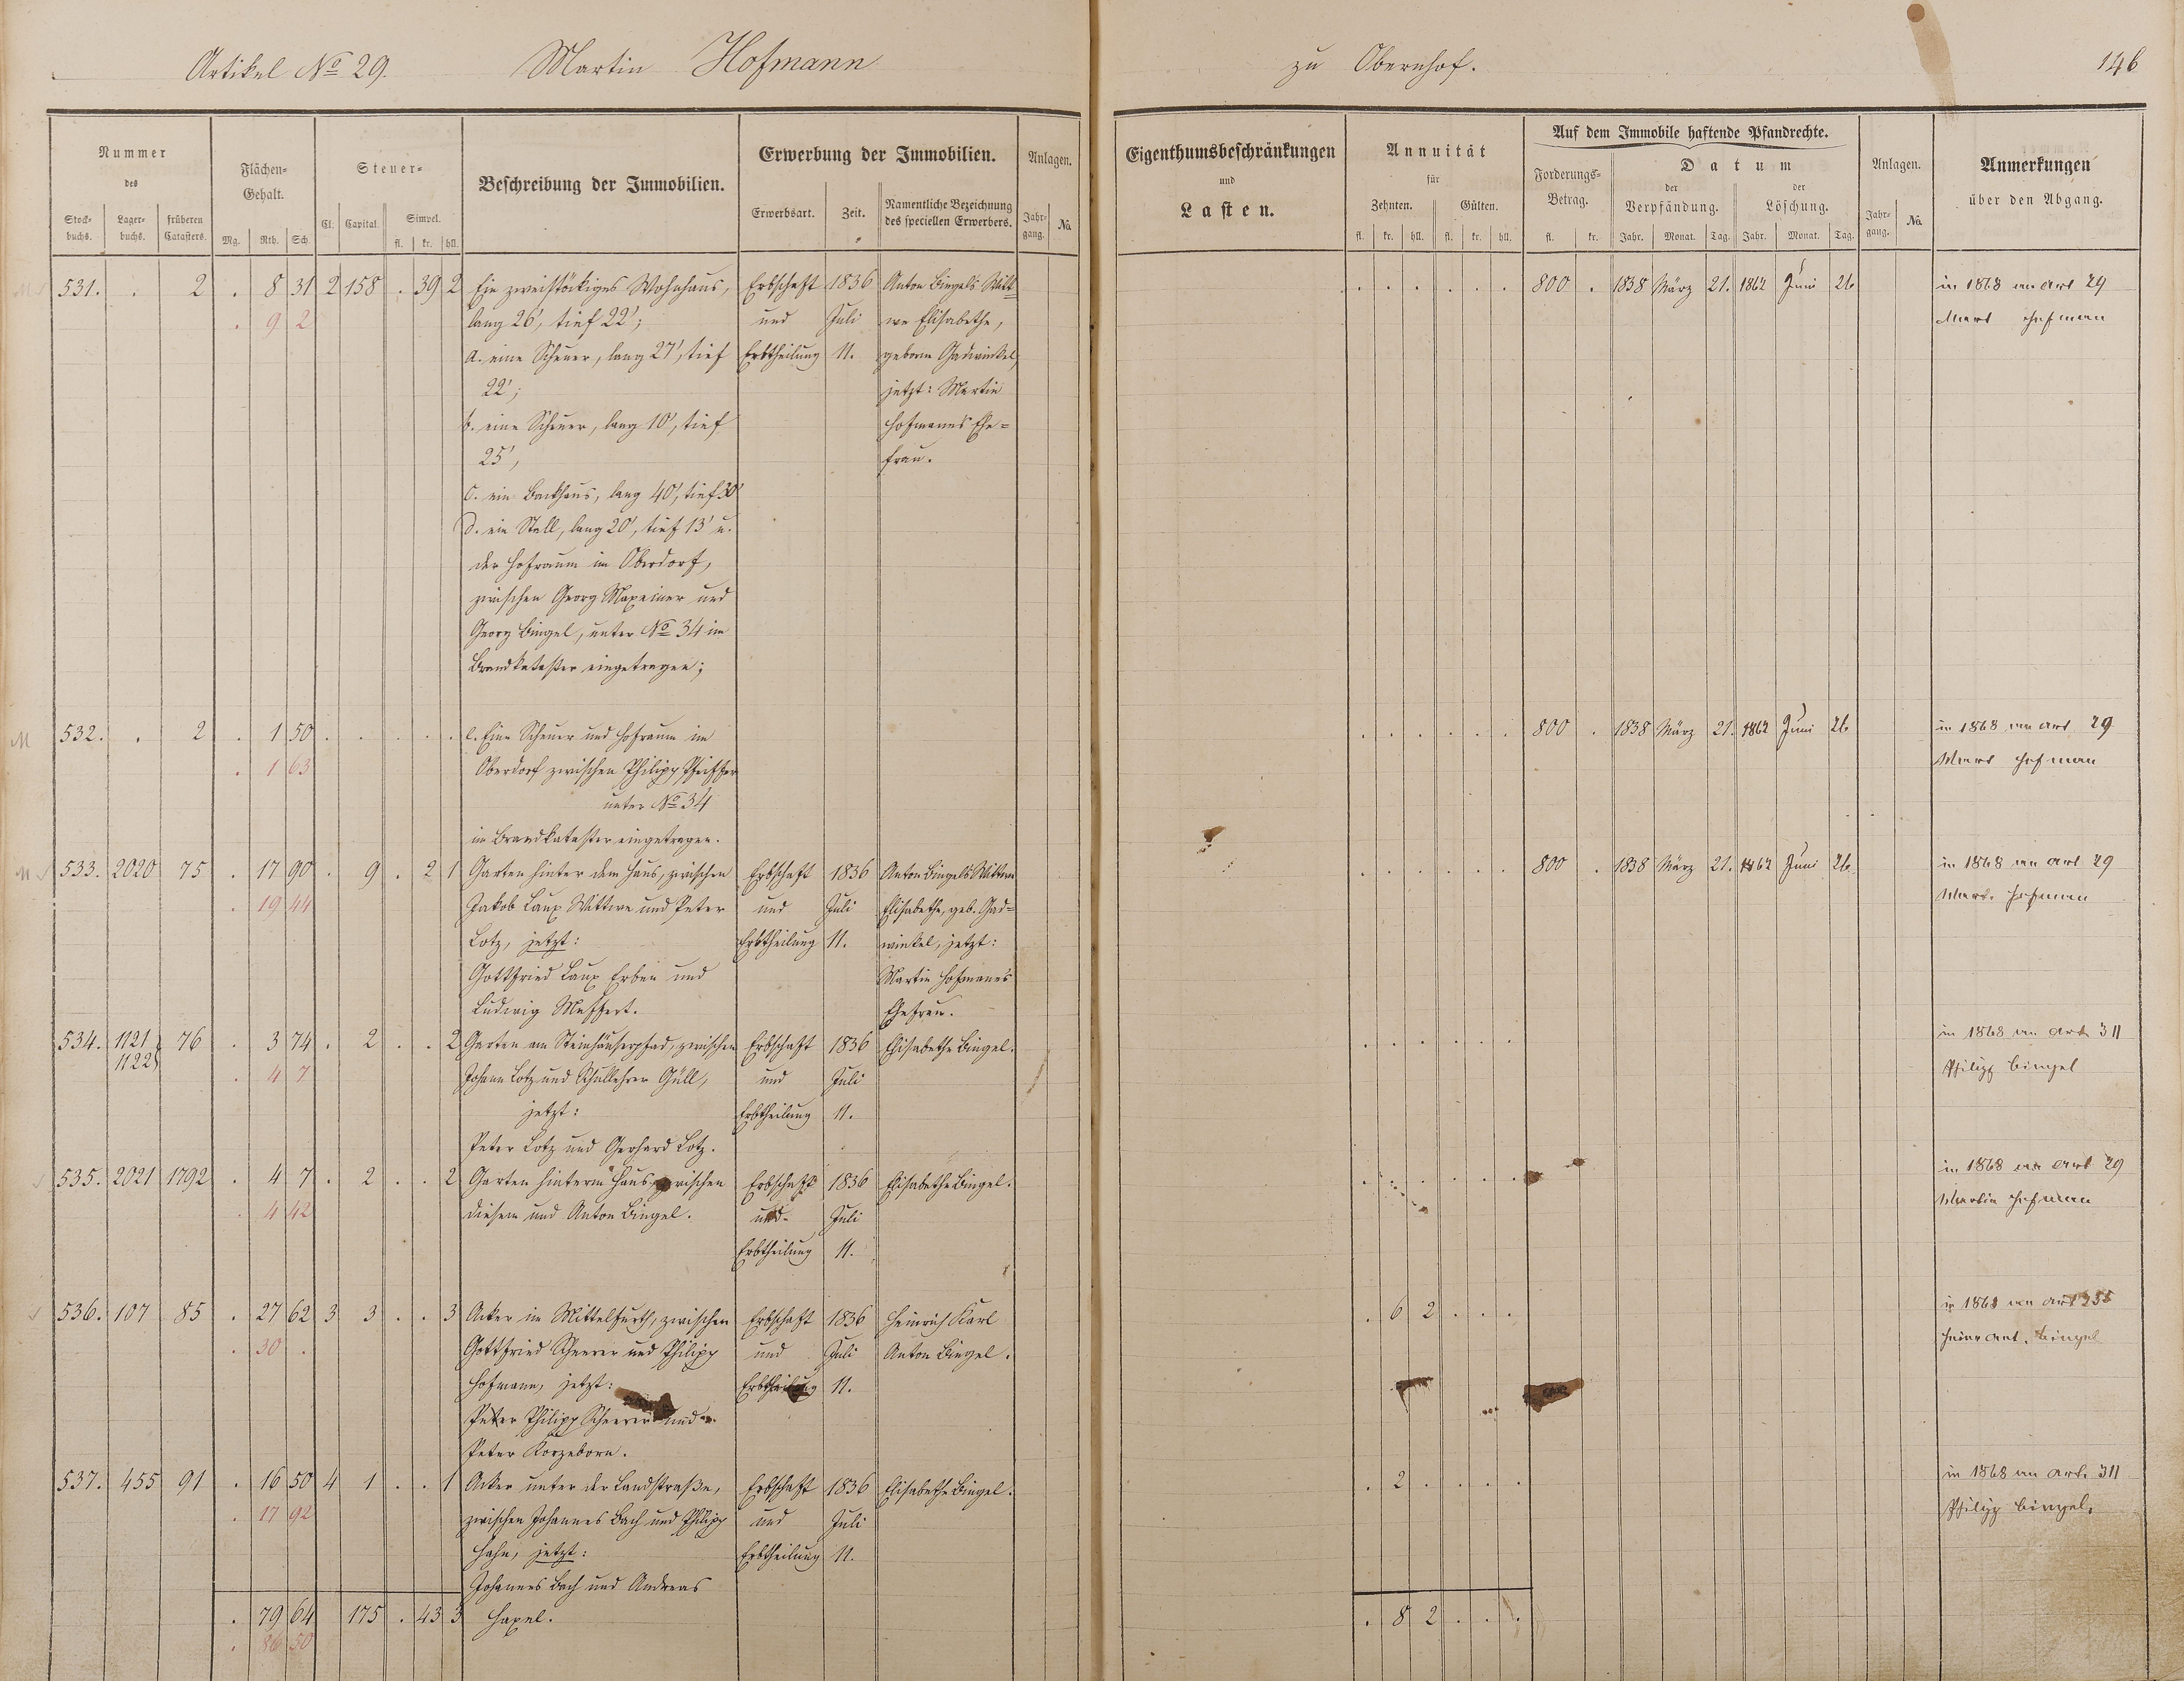 Artikel No 29. Martin Hofmann zu Obernhof. 146
Nummer
des
Stock-
buchs.
Lager-
buchs.
früheren
Catasters.
Flächen-
Gehalt.
Mg. Rth. Sch.
Steuer-
Cl. Capital.
Simpel.
fl. kr. hll.
Beschreibung der Immobilien.
Erwerbung der Immobilien.
Erwerbsart. Zeit.
Namentliche Bezeichnung
des speciellen Erwerbers.
Anlagen.
Jahr-
gang.
No.
Eigenthumsbeschränkungen
und
Lasten.
Annuität
für
Zehnten. Gülten.
fl. kr. hll. fl. kr. hll.
Auf dem Immobile haftende Pfandrechte.
Forderungs-
Betrag.
fl. kr.
Datum
der
Verpfändung.
der
Löschung.
Jahr. Monat. Tag. Jahr. Monat. Tag.
Anlagen.
Jahr-
gang.
No.
Anmerkungen
über den Abgang.
531. . 2 . 8 31 2 158 . 39 2 Ein zweistöckiges Wohnhaus, Erbschaft 1836 Anton Bingels Witt- . . . . . . 800 . 1838 März 21. 1862 Juni 26 in 1868 an Art 29
. 9 2 lang 26', tief 22'; und Juli we Elisabethe, Mart Hofman
a. eine Scheuer, lang 27', tief Erbtheilung 11. geborne Gadwinkel,
22'; jetzt: Martin
b. eine Scheuer, lang 10', tief Hofmanns Ehe-
25', frau.
c. ein Backhaus, lang 40', tief 30'
d. ein Stall, lang 20', tief 13' u.
der Hofraum im Oberdorf,
zwischen Georg Maxeiner und
Georg Bingel, unter No 34 im
Brandkataster eingetragen;
M 532. . 2 . 1 50 . . . . . e. Eine Scheuer und Hofraum im . . . . . . 800 . 1838 März 21. 1862 Juni 26 in 1868 an Art 29
. 1 63 Oberdorf zwischen Philipp Pfeiffer Mart Hofman
unter No 34
im Brandkataster eingetragen.
533. 2020 75 . 17 90 . 9 . 2 1 Garten hinter dem Haus, zwischen Erbschaft 1836 Anton Bingels Wittwe . . . . . . 800 . 1838 März 21. 1862 Juni 26 in 1868 an Art 29
. 19 44 Jakob Laux Wittwe und Peter und Juli Elisabethe, geb. Gad- Mart. Hofman
Lotz, jetzt: Erbtheilung 11. winkel, jetzt:
Gottfried Laux Erben und Martin Hofmanns
Ludwig Meffert. Ehefrau.
534. 1121 76 . 3 74 . 2 . . 2 Garten am Steinhäuserpfad, zwischen Erbschaft 1836 Elisabethe Bingel. . . . . . . in 1868 an Art 311
1122 . 4 7 Johann Lotz und Schullehrer Güll, und Juli Philipp Bingel
jetzt: Erbtheilung 11.
Peter Lotz und Gerhard Lotz.
535. 2021 1792 . 4 7 . 2 . . 2 Garten hinterm Haus, zwischen Erbschaft 1836 Elisabethe Bingel. . . . . . . in 1868 an Art 29
. 4 42 diesem und Anton Bingel. und Juli Martin Hofman
Erbtheilung 11.
536. 107 85 . 27 62 3 3 . . 3 Acker im Mittelfurth, zwischen Erbschaft 1836 Heinrich Karl . 6 2 . . . in 1868 an Art
. 30 . Gottfried Scheerer und Philipp und Juli Anton Bingel. Heinr Ant. Bingel
Hofmann, jetzt: Erbtheilung 11.
Peter Philipp Scheerer und
Peter Korzeborn.
537. 455 91 . 16 50 4 1 . . 1 Acker unter der Landstraße, Erbschaft 1836 Elisabethe Bingel. . 2 . . . . in 1868 an Art. 311
. 17 92 zwischen Johannes Bach und Philipp und Juli Philipp Bingel.
Hahn, jetzt: Erbtheilung 11.
Johannes Bach und Andreas
. 79 64 175 . 43 3 Hapel. . 8 2 . . .
. 86 50